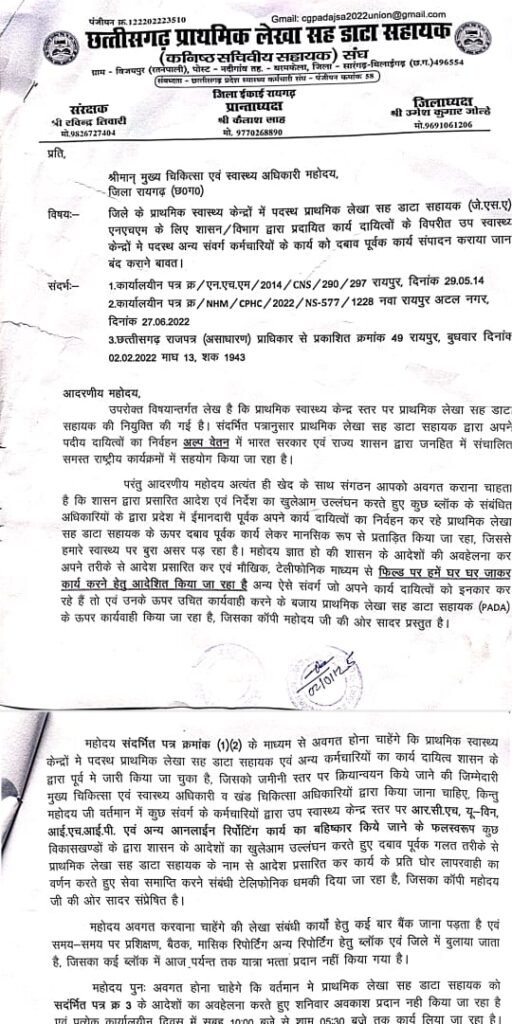 पंजीयन क्र.122202223510
Gmail: cgpadajsa2022union@gmail.com
छत्तीसगढ़ प्राथमिक लेखा सह डाटा सहायक
(कनिष्ठ सचिवीय सहायक) संघ
ग्राम - विजयपुर (रतनपाली), पोस्ट - नदीगांव तह. - बरमकेला, जिला - सारंगढ़-बिलाईगढ़ (छ.ग.)496554
संबध्दता - छत्तीसगढ़ प्रदेश स्वास्थ्य कर्मचारी संघ - पंजीयन कमांक 58
जिला ईकाई रायगढ़
संरक्षक
श्री रविन्द्र तिवारी
मो.9826727404
प्रान्ताध्यक्ष
श्री कैलाश साह
मो. 9770268890
जिलाध्यक्ष
श्री उगेश कुमार जोल्हे
मो.9691061206
प्रति,
श्रीमान् मुख्य चिकित्सा एवं स्वास्थ्य अधिकारी महोदय,
जिला रायगढ़ (छ०ग०)
विषयः– जिले के प्राथमिक स्वास्थ्य केन्द्रों में पदस्थ प्राथमिक लेखा सह डाटा सहायक (जे.एस.ए)
एनएचएम के लिए शासन/विभाग द्वारा प्रदायित कार्य दायित्वों के विपरीत उप स्वास्थ्य
केन्द्रों मे पदस्थ अन्य संवर्ग कर्मचारियों के कार्य को दबाव पूर्वक कार्य संपादन कराया जान
बंद कराने बावत।
संदर्भः– 1.कार्यालयीन पत्र क्र/एन.एच.एम/2014/CNS/290/297 रायपुर, दिनांक 29.05.14
2.कार्यालयीन पत्र क्र/NHM/CPHC/2022/NS-577/1228 नवा रायपुर अटल नगर,
दिनांक 27.06.2022
3.छत्तीसगढ़ राजपत्र (असाधारण) प्राधिकार से प्रकाशित क्रमांक 49 रायपुर, बुधवार दिनांक
02.02.2022 माघ 13, शक 1943
आदरणीय महोदय,
उपरोक्त विषयान्तर्गत लेख है कि प्राथमिक स्वास्थ्य केन्द्र स्तर पर प्राथमिक लेखा सह डाटा
सहायक की नियुक्ति की गई है। संदर्भित पत्रानुसार प्राथमिक लेखा सह डाटा सहायक द्वारा अपने
पदीय दायित्वों का निर्वहन अल्प वेतन में भारत सरकार एवं राज्य शासन द्वारा जनहित में संचालित
समस्त राष्ट्रीय कार्यक्रमों में सहयोग किया जा रहा है।
परंतु आदरणीय महोदय अत्यंत ही खेद के साथ संगठन आपको अवगत कराना चाहता
है कि शासन द्वारा प्रसारित आदेश एवं निर्देश का खुलेआम उल्लंघन करते हुए कुछ ब्लॉक के संबंधित
अधिकारियों के द्वारा प्रदेश में ईमानदारी पूर्वक अपने कार्य दायित्वों का निर्वहन कर रहे प्राथमिक लेखा
सह डाटा सहायक के ऊपर दबाव पूर्वक कार्य लेकर मानसिक रूप से प्रताड़ित किया जा रहा, जिससे
हमारे स्वास्थ्य पर बुरा असर पड़ रहा है। महोदय ज्ञात हो की शासन के आदेशों की अवहेलना कर
अपने तरीके से आदेश प्रसारित कर एवं मौखिक, टेलीफोनिक माध्यम से फिल्ड पर हमें घर घर जाकर
कार्य करने हेतु आदेशित किया जा रहा है अन्य ऐसे संवर्ग जो अपने कार्य दायित्वों को इनकार कर
रहे हैं तो एवं उनके ऊपर उचित कार्यवाही करने के बजाय प्राथमिक लेखा सह डाटा सहायक (PADA)
के ऊपर कार्यवाही किया जा रहा है, जिसका कॉपी महोदय जी की ओर सादर प्रस्तुत है।
02/01/25
महोदय संदर्भित पत्र क्रमांक (1)(2) के माध्यम से अवगत होना चाहेंगे कि प्राथमिक स्वास्थ्य
केन्द्रों मे पदस्थ प्राथमिक लेखा सह डाटा सहायक एवं अन्य कर्मचारियों का कार्य दायित्व शासन के
द्वारा पूर्व मे जारी किया जा चुका है, जिसको जमीनी स्तर पर क्रियान्वयन किये जाने की जिम्मेदारी
मुख्य चिकित्सा एवं स्वास्थ्य अधिकारी व खंड चिकित्सा अधिकारीयों द्वारा किया जाना चाहिए, किन्तु
महोदय जी वर्तमान में कुछ संवर्ग के कर्मचारियों द्वारा उप स्वास्थ्य केन्द्र स्तर पर आर.सी.एच, यू–विन,
आई.एच.आई.पी. एवं अन्य आनलाईन रिपोर्टिंग कार्य का बहिष्कार किये जाने के फलस्वरूप कुछ
विकासखण्डों के द्वारा शासन के आदेशों का खुलेआम उल्लंघन करते हुए दबाव पूर्वक गलत तरीके से
प्राथमिक लेखा सह डाटा सहायक के नाम से आदेश प्रसारित कर कार्य के प्रति घोर लापरवाही का
वर्णन करते हुए सेवा समाप्ति करने संबंधी टेलिफोनिक धमकी दिया जा रहा है, जिसका कॉपी महोदय
जी की ओर सादर संप्रेषित है।
महोदय अवगत करवाना चाहेंगे की लेखा संबंधी कार्यो हेतु कई बार बैंक जाना पड़ता है एवं
समय–समय पर प्रशिक्षण, बैठक, मासिक रिपोर्टिंग अन्य रिपोर्टिंग हेतु ब्लॉक एवं जिले में बुलाया जाता
है, जिसका कई ब्लॉक में आज पर्यन्त तक यात्रा भत्ता प्रदान नहीं किया गया है।
महोदय पुनः अवगत होना चाहेगे कि वर्तमान मे प्राथमिक लेखा सह डाटा सहायक को
सदंर्भित पत्र क्र 3 के आदेशों का अवहेलना करते हुए शनिवार अवकाश प्रदान नही किया जा रहा है
एवं प्रत्येक कार्यालयीन दिवस में सुबह 10:00 बजे से शाम 05:30 बजे तक कार्य लिया जा रहा है।